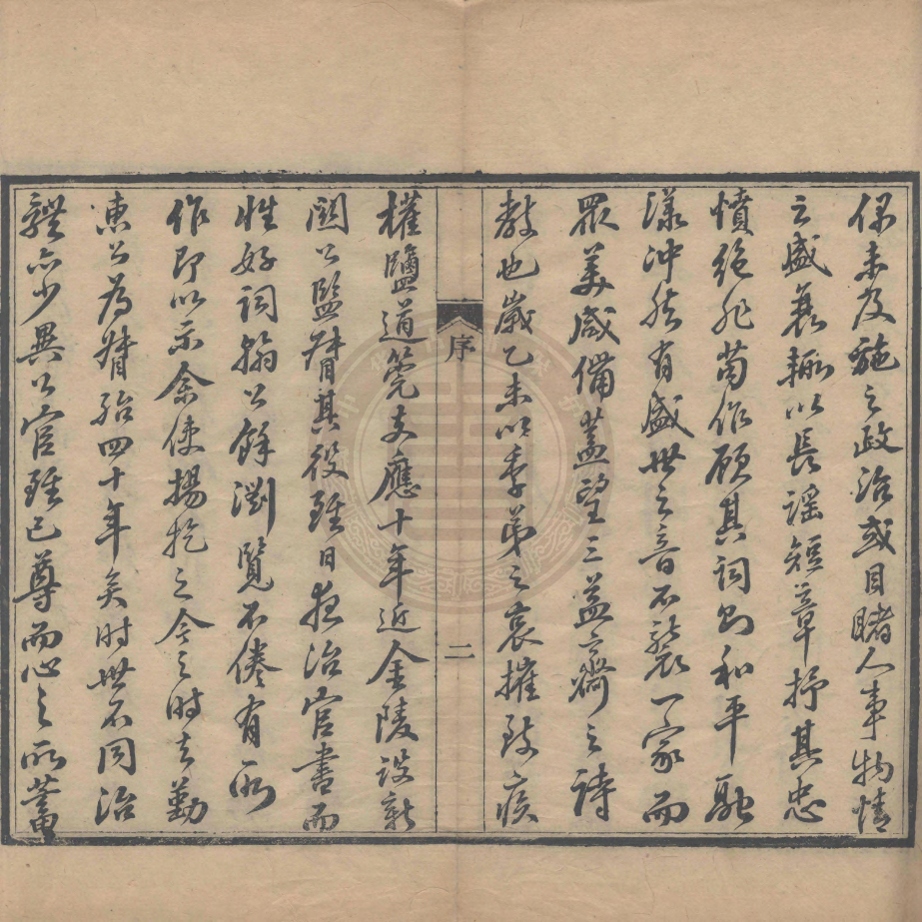 保未及施之政治或目睹人事物情
之盛衰輒以長謠短章抒其忠
憤絕非苟作顧其詞則和平融
漾沖然有盛世之音不襲一家而
眾美咸備蓋望三益齋之詩
教也歲乙未以季弟之喪摧致疾
序
二
榷鹽道筦支應十年近金陵設新
關公監督其役雖日夜治官書而
性好詞翰公餘瀏覽不倦有所
作即以示余使揚扢之今之時去勤
惠公為督殆四十年矣時世不同治
體亦少異公官雖已尊而心之所蓄